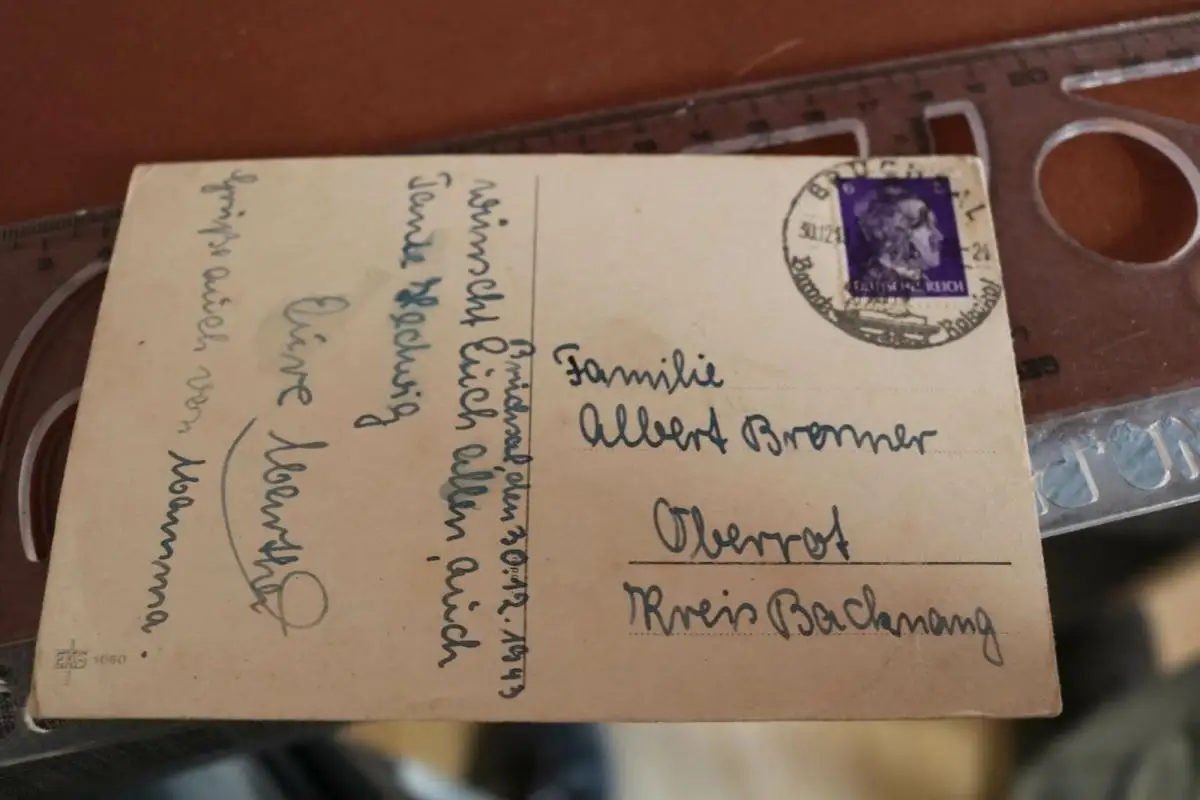 Bruchsal, den 30.12.1943
wünscht Euch allen auch
Tante Hedwig
Eure Martha
Grüße auch von Mamma
1060
BRUCHSAL
30.12.
-21
Barock
6
DEUTSCHES REICH
Familie
Albert Bronner
Oberrot
Kreis Backnang